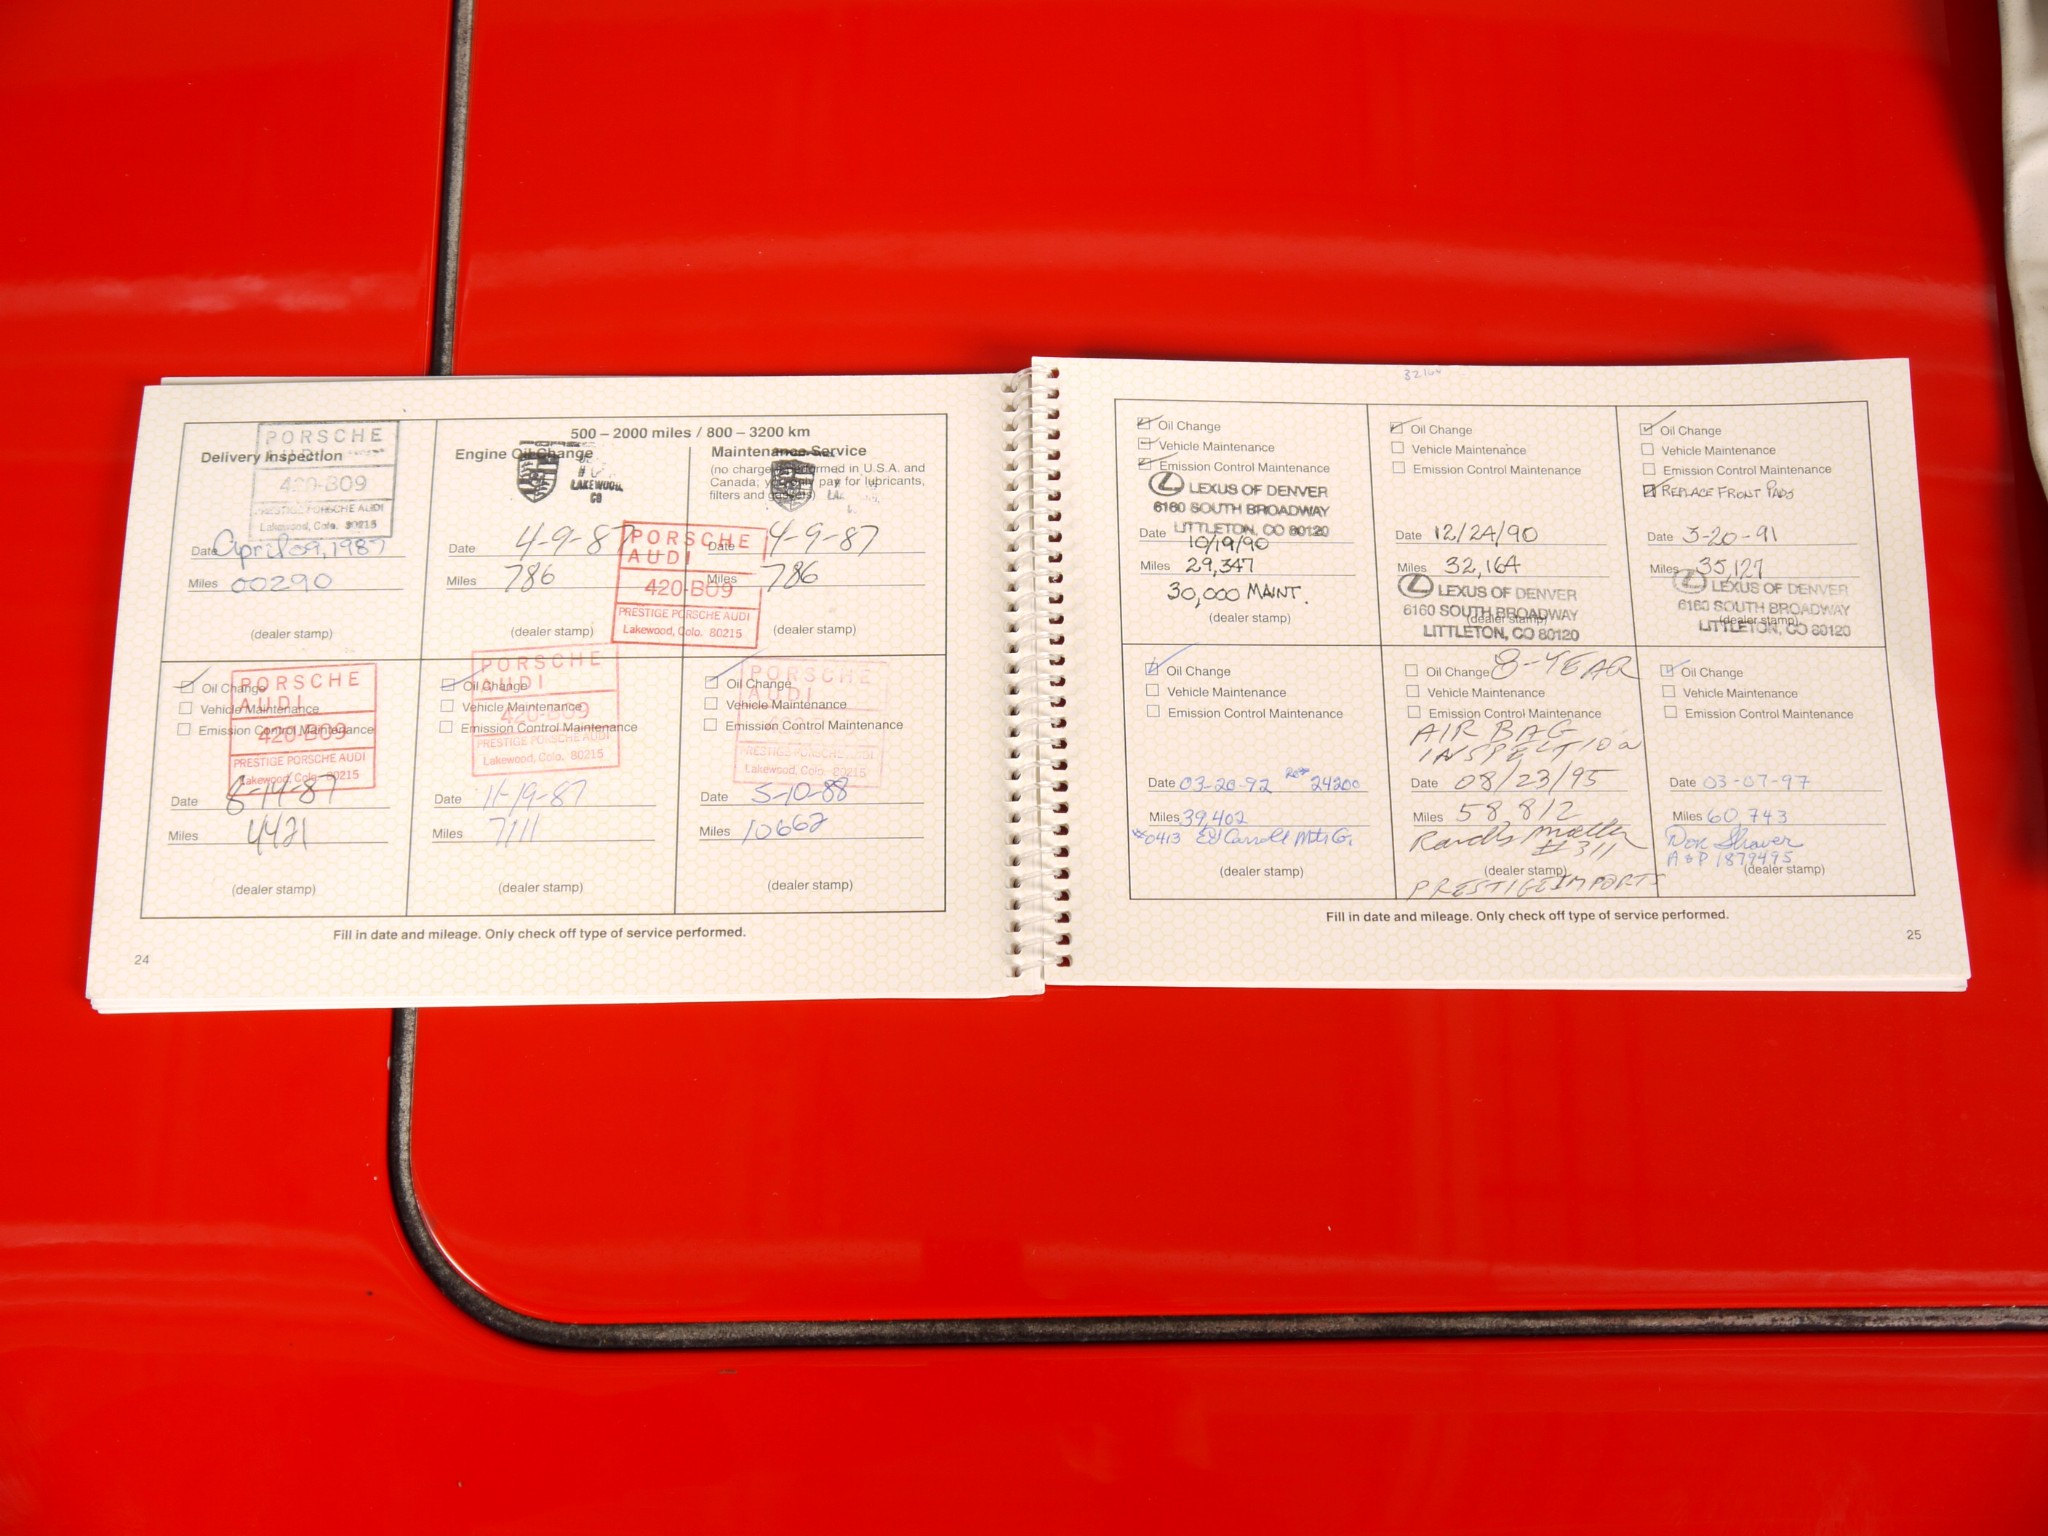 PORSCHE
AUDI
Delivery Inspection
420-B09
PRESTIGE PORSCHE AUDI
Lakewood, Colo. 80215
Date April 09, 1987
Miles 00290
(dealer stamp)
500 – 2000 miles / 800 – 3200 km
Engine Oil Change
LAKEWOOD,
CO
Date 4-9-87
Miles 786
(dealer stamp)
Maintenance Service
(no charge performed in U.S.A. and
Canada; you only pay for lubricants,
filters and gaskets)
Date 4-9-87
Miles 786
(dealer stamp)
PORSCHE
AUDI
420-B09
PRESTIGE PORSCHE AUDI
Lakewood, Colo. 80215
Oil Change
Vehicle Maintenance
Emission Control Maintenance
PORSCHE
AUDI
420-B09
PRESTIGE PORSCHE AUDI
Lakewood, Colo. 80215
Date 8-14-87
Miles 4421
(dealer stamp)
Oil Change
Vehicle Maintenance
Emission Control Maintenance
PORSCHE
AUDI
420-B09
PRESTIGE PORSCHE AUDI
Lakewood, Colo. 80215
Date 11-19-87
Miles 7111
(dealer stamp)
Oil Change
Vehicle Maintenance
Emission Control Maintenance
PORSCHE
AUDI
PRESTIGE PORSCHE AUDI
Lakewood, Colo. 80215
Date 5-10-88
Miles 10662
(dealer stamp)
Fill in date and mileage. Only check off type of service performed.
24
32164
Oil Change
Vehicle Maintenance
Emission Control Maintenance
LEXUS OF DENVER
6160 SOUTH BROADWAY
LITTLETON, CO 80120
Date 10/19/90
Miles 29,347
30,000 MAINT.
(dealer stamp)
Oil Change
Vehicle Maintenance
Emission Control Maintenance
Date 12/24/90
Miles 32,164
LEXUS OF DENVER
6160 SOUTH BROADWAY
(dealer stamp)
LITTLETON, CO 80120
Oil Change
Vehicle Maintenance
Emission Control Maintenance
REPLACE FRONT PADS
Date 3-20-91
Miles 35,127
LEXUS OF DENVER
6160 SOUTH BROADWAY
(dealer stamp)
LITTLETON, CO 80120
Oil Change
Vehicle Maintenance
Emission Control Maintenance
Date 03-20-92 24200
Miles 39,402
#0413 Ed Carroll
(dealer stamp)
Oil Change 8-YEAR
Vehicle Maintenance
Emission Control Maintenance
AIR BAG
INSPECTION
Date 08/23/95
Miles 58,812
#311
(dealer stamp)
PRESTIGE IMPORTS
Oil Change
Vehicle Maintenance
Emission Control Maintenance
Date 03-07-97
Miles 60,743
Don Shaver
A&P 1879495
(dealer stamp)
Fill in date and mileage. Only check off type of service performed.
25